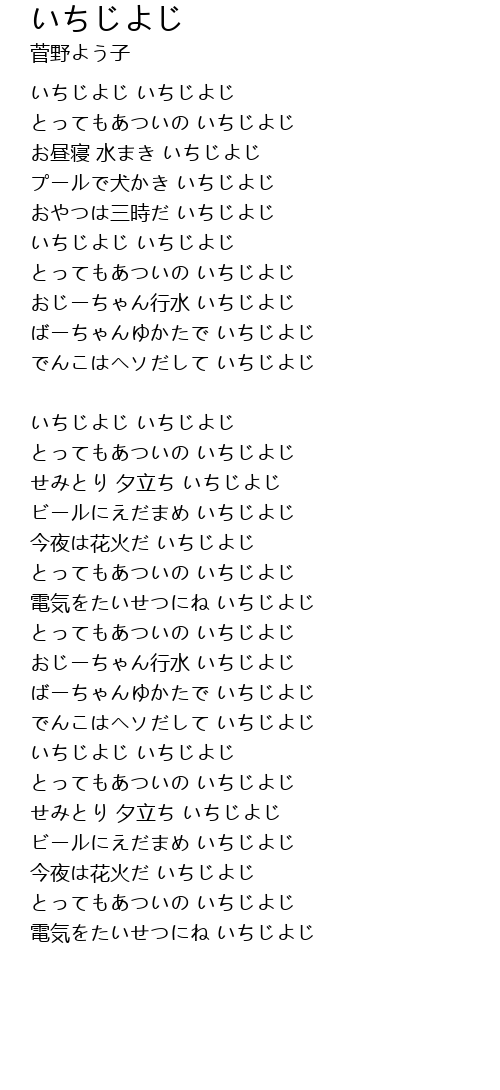 いちじよじ
菅野よう子
いちじよじ いちじよじ
とってもあついの いちじよじ
お昼寝 水まき いちじよじ
プールで犬かき いちじよじ
おやつは三時だ いちじよじ
いちじよじ いちじよじ
とってもあついの いちじよじ
おじーちゃん行水 いちじよじ
ばーちゃんゆかたで いちじよじ
でんこはヘソだして いちじよじ

いちじよじ いちじよじ
とってもあついの いちじよじ
せみとり 夕立ち いちじよじ
ビールにえだまめ いちじよじ
今夜は花火だ いちじよじ
とってもあついの いちじよじ
電気をたいせつにね いちじよじ
とってもあついの いちじよじ
おじーちゃん行水 いちじよじ
ばーちゃんゆかたで いちじよじ
でんこはヘソだして いちじよじ
いちじよじ いちじよじ
とってもあついの いちじよじ
せみとり 夕立ち いちじよじ
ビールにえだまめ いちじよじ
今夜は花火だ いちじよじ
とってもあついの いちじよじ
電気をたいせつにね いちじよじ